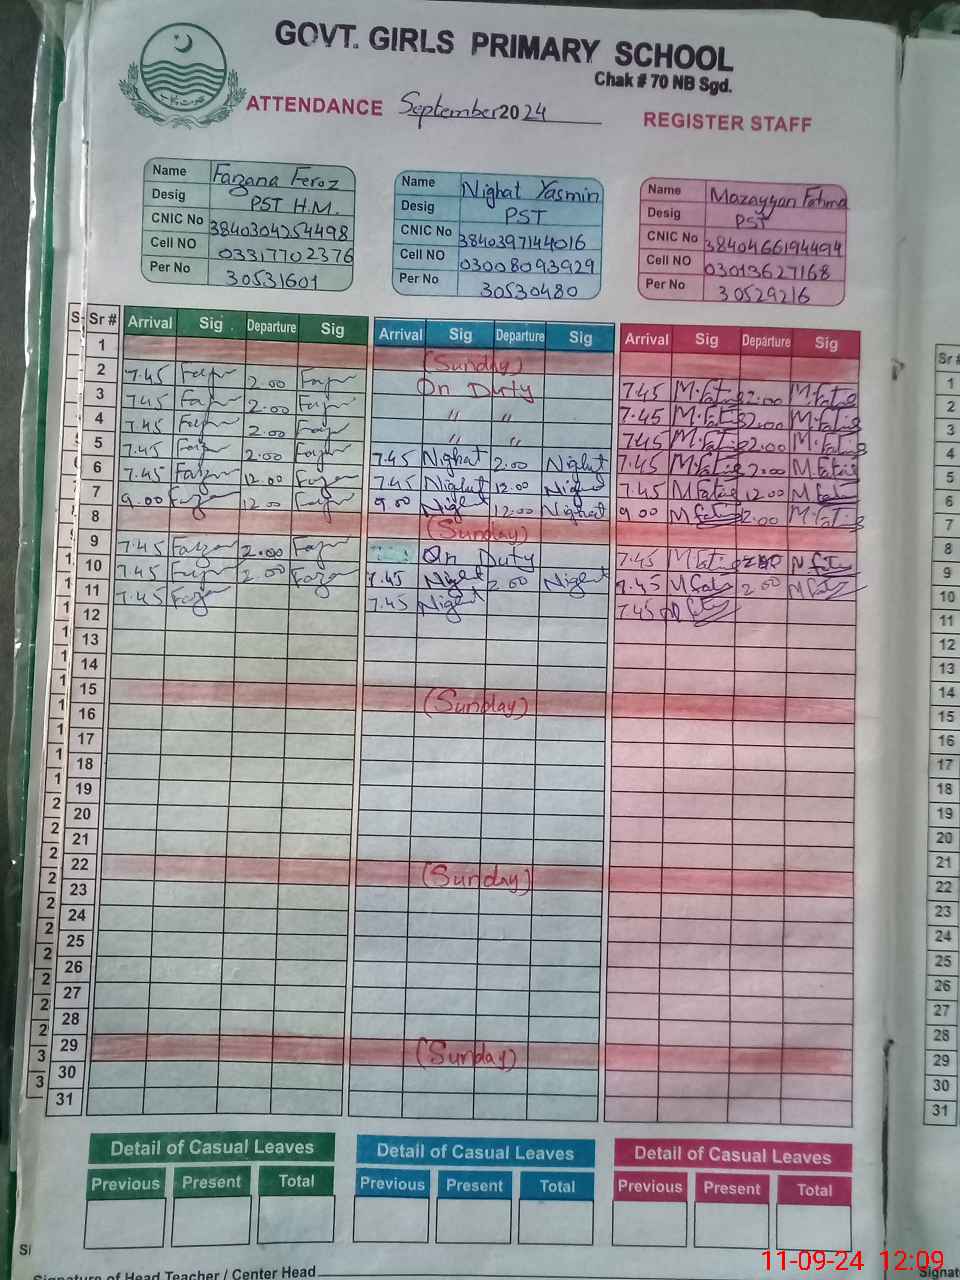 GOVT. GIRLS PRIMARY SCHOOL
Chak # 70 NB Sgd.
ATTENDANCE September 2024 REGISTER STAFF
Name Farzana Feroz
Desig PST H.M.
CNIC No 3840304254498
Cell NO 03317702376
Per No 30531601
Name Nighat Yasmin
Desig PST
CNIC No 3840397144016
Cell NO 03008093929
Per No 30530480
Name Mazayyan Fatima
Desig PST
CNIC No 3840466194494
Cell NO 03013627168
Per No 30529216
Sr # Arrival Sig Departure Sig Arrival Sig Departure Sig Arrival Sig Departure Sig
1 (Sunday)
2 7.45 2.00 On Duty 7.45 M.Fatima 2.00 M.Fatima
3 7.45 2.00 " " 7.45 M.Fatima 2.00 M.Fatima
4 7.45 2.00 " " 7.45 M.Fatima 2.00 M.Fatima
5 7.45 2.00 7.45 Nighat 2.00 Nighat 7.45 M.Fatima 2.00 M.Fatima
6 7.45 12.00 7.45 Nighat 12.00 Nighat 7.45 M Fatima 12.00 M Fatima
7 9.00 12.00 9.00 Nighat 12:00 Nighat 9.00 M Fatima 12.00 M.Fatima
8 (Sunday)
9 7.45 2.00 On Duty 7.45 M Fatima
10 7.45 2.00 7.45 Nighat 2.00 Nighat 7.45 M Fatima 2.00 M Fatima
11 7.45 7.45 Nighat 7.45
12
13
14
15 (Sunday)
16
17
18
19
20
21
22 (Sunday)
23
24
25
26
27
28
29 (Sunday)
30
31
Detail of Casual Leaves Detail of Casual Leaves Detail of Casual Leaves
Previous Present Total Previous Present Total Previous Present Total
Signature of Head Teacher / Center Head
Sr #
1
2
3
4
5
6
7
8
9
10
11
12
13
14
15
16
17
18
19
20
21
22
23
24
25
26
27
28
29
30
31
11-09-24 12:09